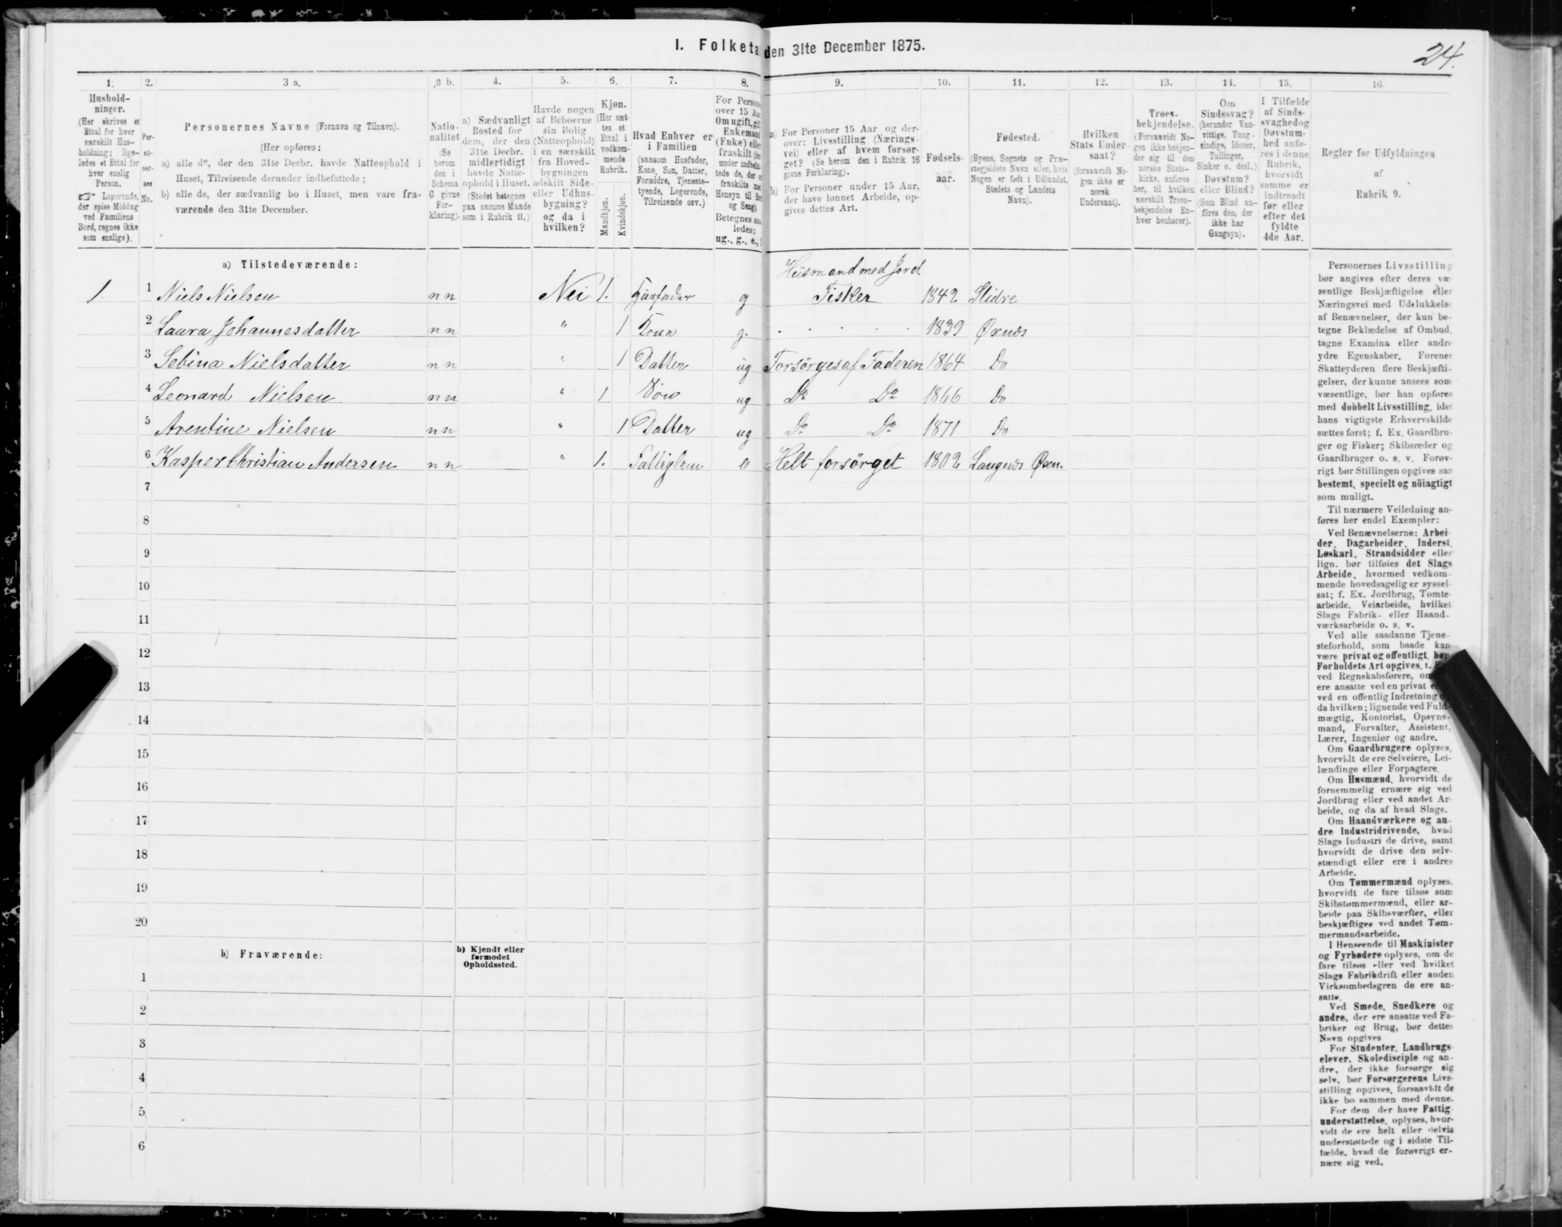 24.
I. Folketa den 31te December 1875.
1. 2. 3 a. 3 b. 4. 5. 6. 7. 8. 9. 10. 11. 12. 13. 14. 15. 16.
Hushold-
ninger.
(Her skrives et
Ettal for hver
særskilt Hus-
holdning; lige-
ledes et Ettal for
hver enslig
Person.
☞ Logerende,
der spise Middag
ved Familiens
Bord, regnes ikke
som enslige).
Per-
so-
ner-
nes
No.
Personernes Navne (Fornavn og Tilnavn).
(Her opføres:
a) alle de, der den 31te Decbr. havde Natteophold i
Huset, Tilreisende derunder indbefattede;
b) alle de, der sædvanlig bo i Huset, men vare fra-
værende den 31te December.
Natio-
nalitet
(Se
herom
den i
Schema
C givne
For-
klaring).
a) Sædvanligt
Bosted for
dem, der den
31te Decbr.
midlertidigt
havde Natte-
ophold i Huset.
(Stedet betegnes
paa samme Maade
som i Rubrik 11.)
Havde nogen
af Beboerne
sin Bolig
(Natteophold)
i en særskilt
fra Hoved-
bygningen
adskilt Side-
eller Udhus-
bygning?
og da i
hvilken?
Kjøn.
(Her sæt-
tes et
Ettal i
vedkom-
mende
Rubrik.
Mandkjøn.
Kvindekjøn.
Hvad Enhver er
i Familien
(saasom Husfader,
Kone, Søn, Datter,
Forældre, Tjeneste-
tyende, Logerende,
Tilreisende osv.)
For Persone
over 15 Aa
Om ugift, gif
Enkemand
(Enke) elle
fraskilt
Betegnes
ledes:
ug., g., e.,
a) For Personer 15 Aar og der-
over: Livsstilling (Nærings-
vei) eller af hvem forsør-
get? (Se herom den i Rubrik 16
givne Forklaring).
b) For Personer under 15 Aar,
der have lønnet Arbeide, op-
gives dettes Art.
Fødsels-
aar.
Fødested.
(Byens, Sognets og Præ-
stegjeldets Navn eller, hvis
Nogen er født i Udlandet,
Stedets og Landets
Navn).
Hvilken
Stats Under-
saat?
(forsaavidt No-
gen ikke er
norsk
Undersaat).
Troes-
bekjendelse.
(Forsaavidt No-
gen ikke bekjen-
der sig til den
norske Stats-
kirke, anføres
her, til hvilken
særskilt Troes-
bekjendelse En-
hver henhører).
Om
Sindssvag?
(herunder Van-
vittige, Tung-
sindige, Idioter,
Tullinger,
Sinker o. desl.)
Døvstum?
eller Blind?
(Som Blind an-
føres den, der
ikke har
Gangsyn).
I Tilfælde
af Sinds-
svaghed og
Døvstum-
hed anfø-
res i denne
Rubrik,
hvorvidt
samme er
indtraadt
før eller
efter det
fyldte
4de Aar.
Regler for Udfyldningen
af
Rubrik 9.
a) Tilstedeværende:
Husmand med Jord
1. 1 Niels Nielsen nn Nei 1. Husfader g Fisker 1842 Slidre
2 Laara Johannesdatter nn " 1 Kone g. 1839 Øxnæs
3 Sebina Nielsdatter nn " 1 Datter ug Forsørges af Faderen 1864 Do
4 Leonard Nielsen nn " 1 Søn ug Do Do 1866 Do
5 Arentine Nielsen nn " 1 Datter ug Do Do 1871 Do
6 Kasper Christian Andersen nn " 1. Fattiglem e Helt forsørget 1802 Langnes Øxn.
7
8
9
10
11
12
13
14
15
16
17
18
19
20
b) Fraværende:
b) Kjendt eller
formodet
Opholdssted.
1
2
3
4
5
6
Personernes Livsstilling
bør angives efter deres væ-
sentlige Beskjæftigelse eller
Næringsvei med Udelukkelse
af Benævnelser, der kun be-
tegne Beklædelse af Ombud,
tagne Examina eller andre
ydre Egenskaber. Forener
Skatteyderen flere Beskjæfti-
gelser, der kunne ansees som
væsentlige, bør han opføres
med dobbelt Livsstilling, idet
hans vigtigste Erhvervskilde
sættes først; f. Ex. Gaardbru-
ger og Fisker; Skibsreder og
Gaardbruger o. s. v. Forøv-
rigt bør Stillingen opgives saa
bestemt, specielt og nöiagtigt
som muligt.
Til nærmere Veiledning an-
føres her endel Exempler:
Ved Benævnelserne: Arbei-
der, Dagarbeider, Inderst,
Løskarl, Strandsidder eller
lign. bør tilføies det Slags
Arbeide, hvormed vedkom-
mende hovedsagelig er syssel-
sat; f. Ex. Jordbrug, Tomte-
arbeide, Veiarbeide, hvilket
Slags Fabrik- eller Haand-
værksarbeide o. s. v.
Ved alle saadanne Tjene-
steforhold, som baade kan
være privat og offentligt, bør
Forholdets Art opgives, t.
ved Regnskabsførere, om
ere ansatte ved en privat
ved en offentlig Indretning
da hvilken; lignende ved Fuld-
mægtig, Kontorist, Opsyns-
mand, Forvalter, Assistent,
Lærer, Ingeniør og andre.
Om Gaardbrugere oplyses,
hvorvidt de ere Selveiere, Lei-
lændinge eller Forpagtere.
Om Husmænd, hvorvidt de
fornemmelig ernære sig ved
Jordbrug eller ved andet Ar-
beide, og da af hvad Slags.
Om Haandværkere og an-
dre Industridrivende, hvad
Slags Industri de drive, samt
hvorvidt de drive den selv-
stændigt eller ere i andres
Arbeide.
Om Tømmermænd oplyses,
hvorvidt de fare tilsøs som
Skibstømmermænd, eller ar-
beide paa Skibsværfter, eller
beskjæftiges ved andet Tøm-
mermandsarbeide.
I Henseende til Maskinister
og Fyrbødere oplyses, om de
fare tilsøs eller ved hvilket
Slags Fabrikdrift eller anden
Virksomhedsgren de ere an-
satte.
Ved Smede, Snedkere og
andre, der ere ansatte ved Fa-
briker og Brug, bør dettes
Navn opgives
For Studenter, Landbrugs-
elever, Skoledisciple og an-
dre, der ikke forsørge sig
selv, bør Forsørgerens Livs-
stilling opgives, forsaavidt de
ikke bo sammen med denne.
For dem, der have Fattig-
understøttelse, oplyses, hvor-
vidt de ere helt eller delvis
understøttede og i sidste Til-
fælde, hvad de forøvrigt er-
nære sig ved.